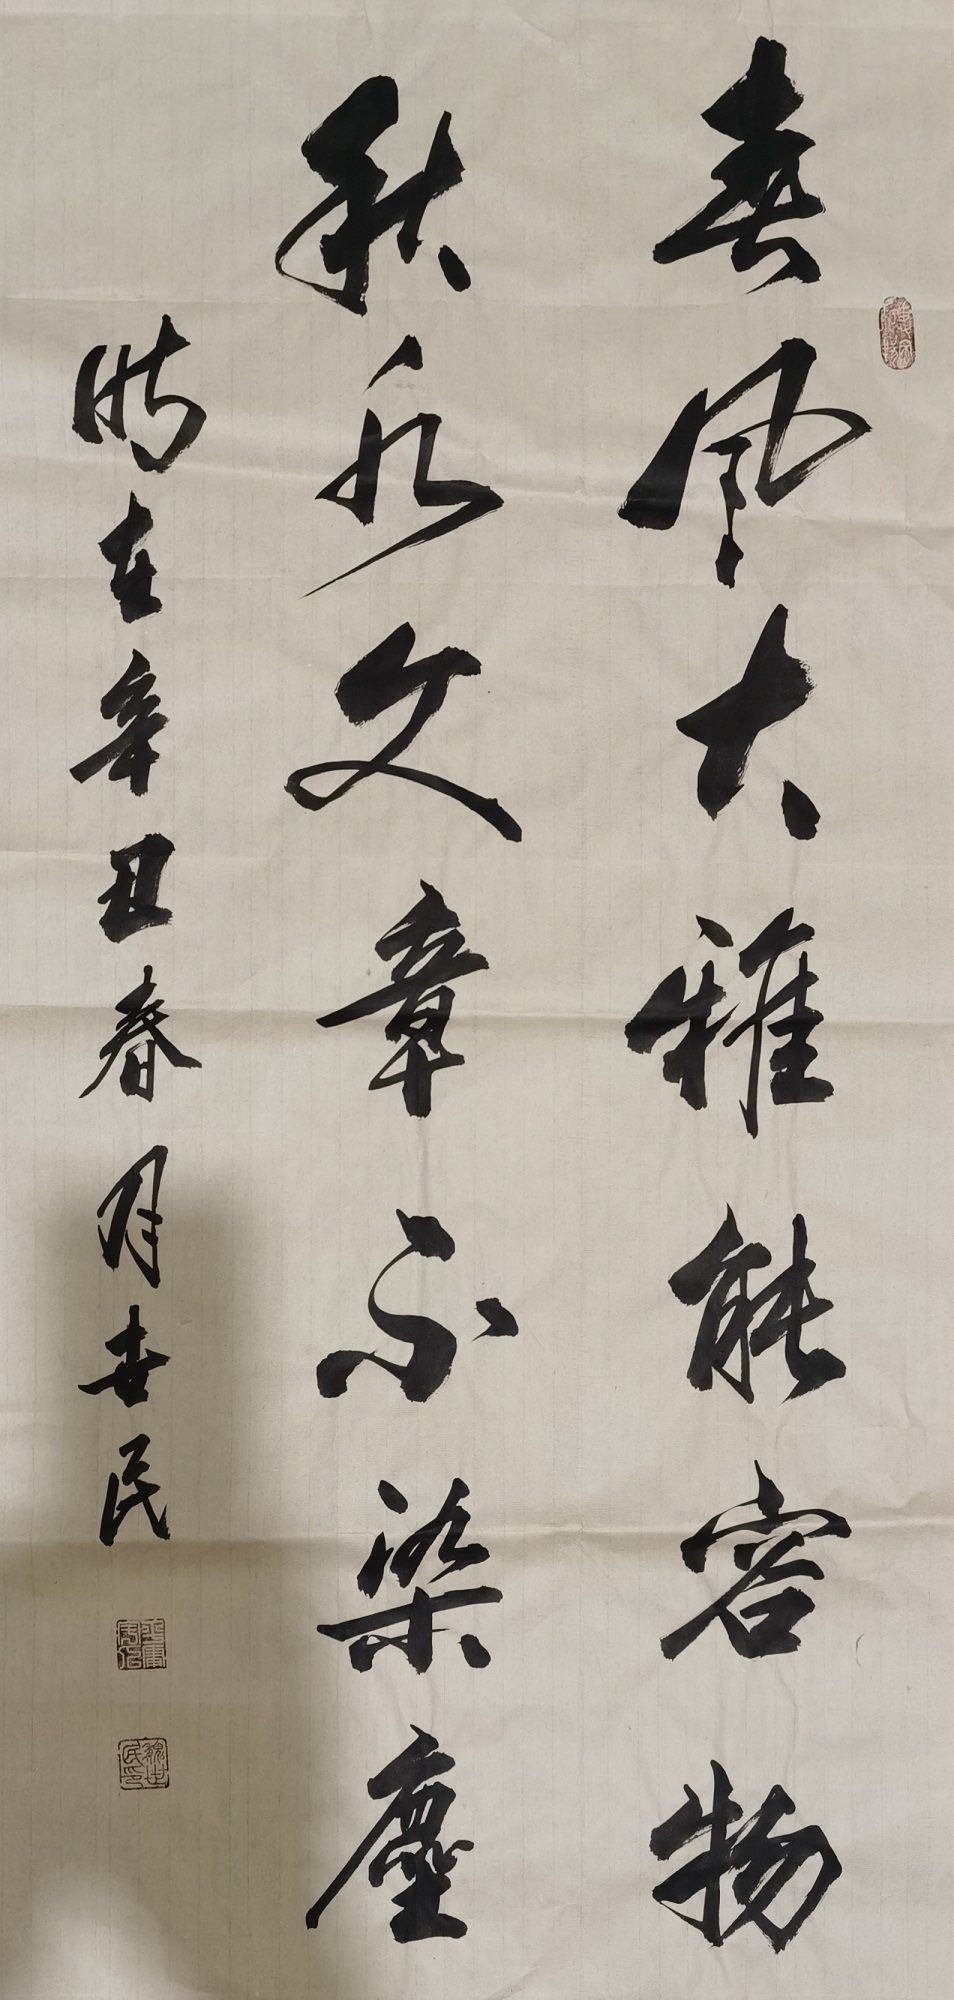 春风大雅能容物
秋水文章不染尘
时在辛丑春月世民